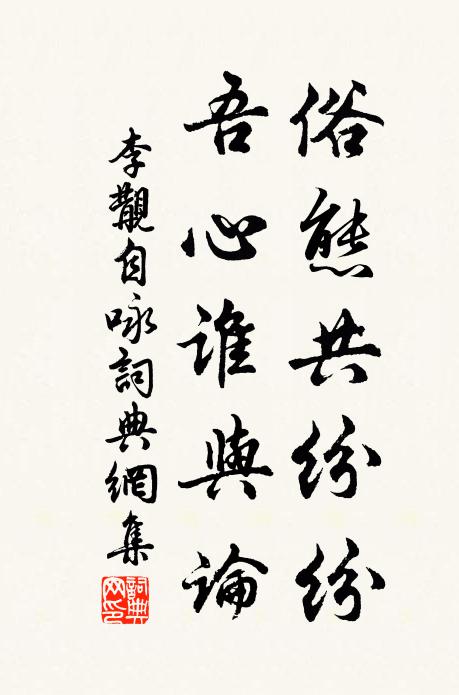 俗態共紛紛
吾心誰與論
李觀自咏詞典網集
詞典網印